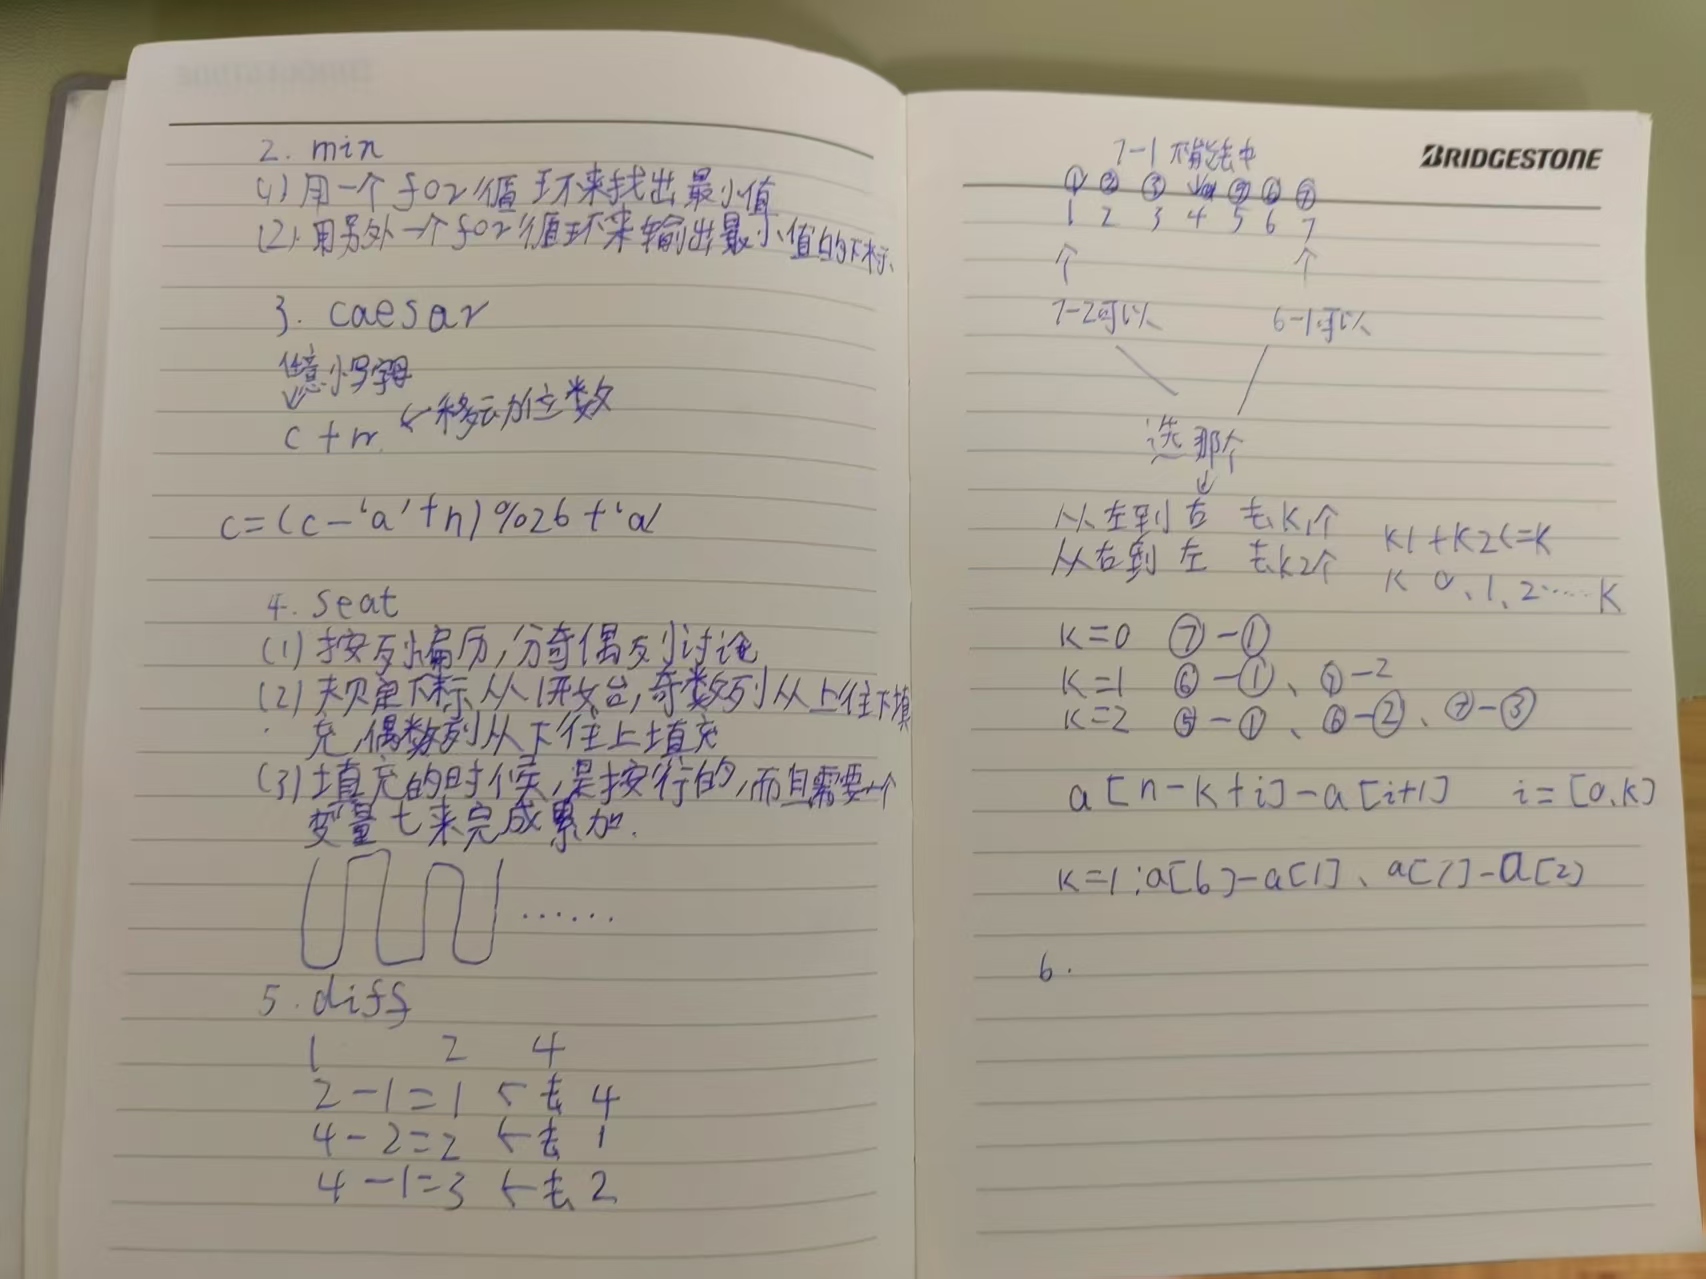 2. min
(1) 用一个for循环来找出最小值
(2) 用另外一个for循环来输出最小值的下标、
3. caesar
任意小写字母
c+n ← 移动位数
c=(c-'a'+n)%26+'a'
4. seat
(1) 按列遍历,分奇偶列讨论
(2) 夫贝是下标从1开始,奇数列从上往下填
充,偶数列从下往上填充
(3) 填充的时候,是按行的,而且需要一个
变量t来完成累加.
......
5. diff
1 2 4
2-1=1 ← 去 4
4-2=2 ← 去 1
4-1=3 ← 去 2
BRIDGESTONE
7-1 不能选中
① ② ③ ⑤ ⑥ ⑦
1 2 3 4 5 6 7
↑ ↑
7-2可以 6-1可以
选那个
↓
从左到右 去k1个
从右到左 去k2个
k1+k2<=k
k 0、1、2……k
k=0 ⑦-①
k=1 ⑥-①、⑦-2
k=2 ⑤-①、⑥-②、⑦-③
a[n-k+i]-a[i+1] i=[0,k]
k=1:a[6]-a[1]、a[7]-a[2]
6.